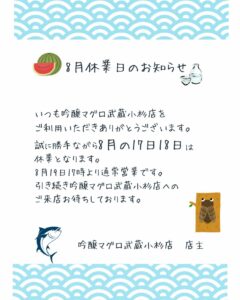 8月休業日のお知らせ
いつも吟醸マグロ武蔵小杉店を
ご利用いただきありがとうございます。
誠に勝手ながら8月の17日18日は
休業となります。
8月19日17時より通常営業です。
引き続き吟醸マグロ武蔵小杉店への
ご来店お待ちしております。
吟醸マグロ武蔵小杉店 店主